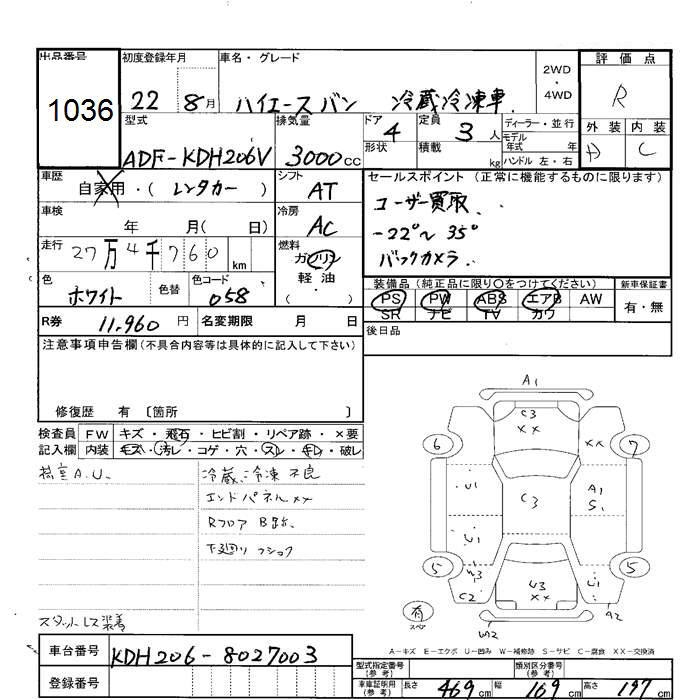 出品番号 初度登録年月 車名・グレード 2WD・4WD 評価点
1036 22 8月 ハイエースバン 冷蔵冷凍車 R
型式 排気量 ドア 4 定員 3人 ディーラー・並行 外装 内装
ADF-KDH206V 3000cc 形状 積載 kg モデル年式 年 ハンドル 左・右 C
車歴 シフト セールスポイント (正常に機能するものに限ります)
自家用・(レンタカー) AT ユーザー買取
車検 年 月( 日) 冷房 AC -22°~35°
走行 27万4千760km 燃料 ガソリン 軽・油 ( ) バックカメラ
色 ホワイト 色替 色コード 058 装備品 (純正品に限り○をつけてください) 新車保証書
PS PW ABS エアB AW 有・無
SR ナビ TV カワ
R券 11,960円 名変期限 月 日 後日品
注意事項申告欄(不具合内容等は具体的に記入して下さい)
修復歴 有 〔箇所 〕
検査員 FW キズ・飛石・ヒビ割・リペア跡・×要
記入欄 内装 キズ・汚レ・コゲ・穴・スレ・キレ・破レ
A.U. 冷蔵、冷凍 不良
エンドパネルxx
Rフロア B
下廻り
スタットレス装着
A1
C3
XX
6 XX 7
U1 C3 A1
S1
U1
5 W3 5
C2 U3 U1
XX A2
有 スペア W2
A-キズ E-エクボ U-凹み W-補修跡 S-サビ C-腐食 XX-交換済
車台番号 KDH206-8027003
登録番号
型式指定番号(参考) 類別区分番号(参考)
車庫証明用(参考) 長さ 469cm 幅 169cm 高さ 197cm